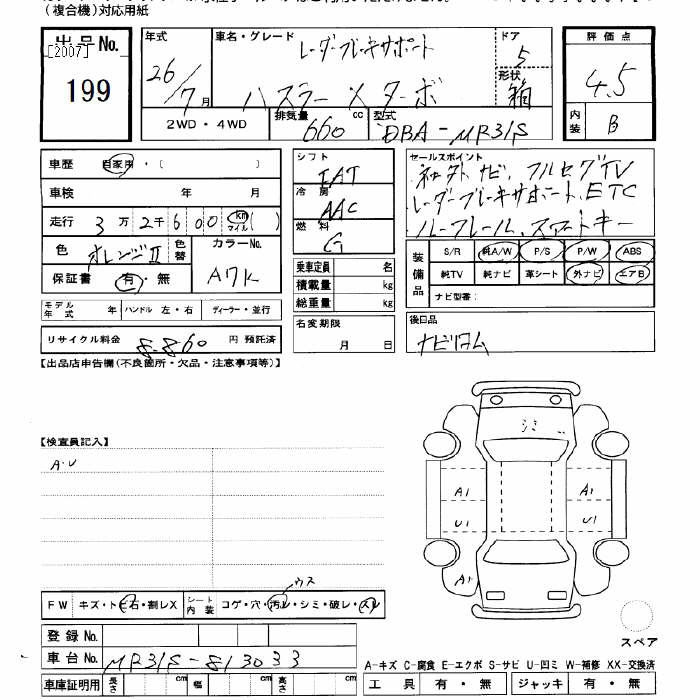 (複合機)対応用紙
出品No.
[2007]
199
年式
26/7月
車名・グレード
レーダーブレーキサポート
ハスラー Xターボ
ドア
5
形状
箱
評価点
4.5
内装
B
2WD・4WD
排気量 660 cc
型式 DBA-MR31S
車歴 自家用・( )
車検 年 月
走行 3万2千600 km マイル ( )
色 オレンジII
色替
カラーNo.
A7K
保証書 有・無
モデル年式 年
ハンドル 左・右
ディーラー・並行
リサイクル料金 8,860 円 預託済
シフト
IAT
冷房
AAC
燃料
G
乗車定員 名
積載量 kg
総重量 kg
名変期限
月 日
セールスポイント
社外ナビ、フルセグTV
レーダーブレーキサポート、ETC
ルーフレール、スマートキー
装備品
S/R 純A/W P/S P/W ABS
純TV 純ナビ 革シート 外ナビ エアB
ナビ型番:
後日品
ナビロム
【出品店申告欄(不良箇所・欠品・注意事項等)】
【検査員記入】
A・U
シミ
A1
U1
A1
U1
A1
FW キズ・トビ石・割レX
シート内装 コゲ・穴・汚レ・シミ・破レ・スレ
ウス
登録No.
車台No. MR31S-813033
車庫証明用 長さ cm 幅 cm 高さ cm
スペア
A-キズ C-腐食 E-エクボ S-サビ U-凹ミ W-補修 XX-交換済
工具 有・無 ジャッキ 有・無